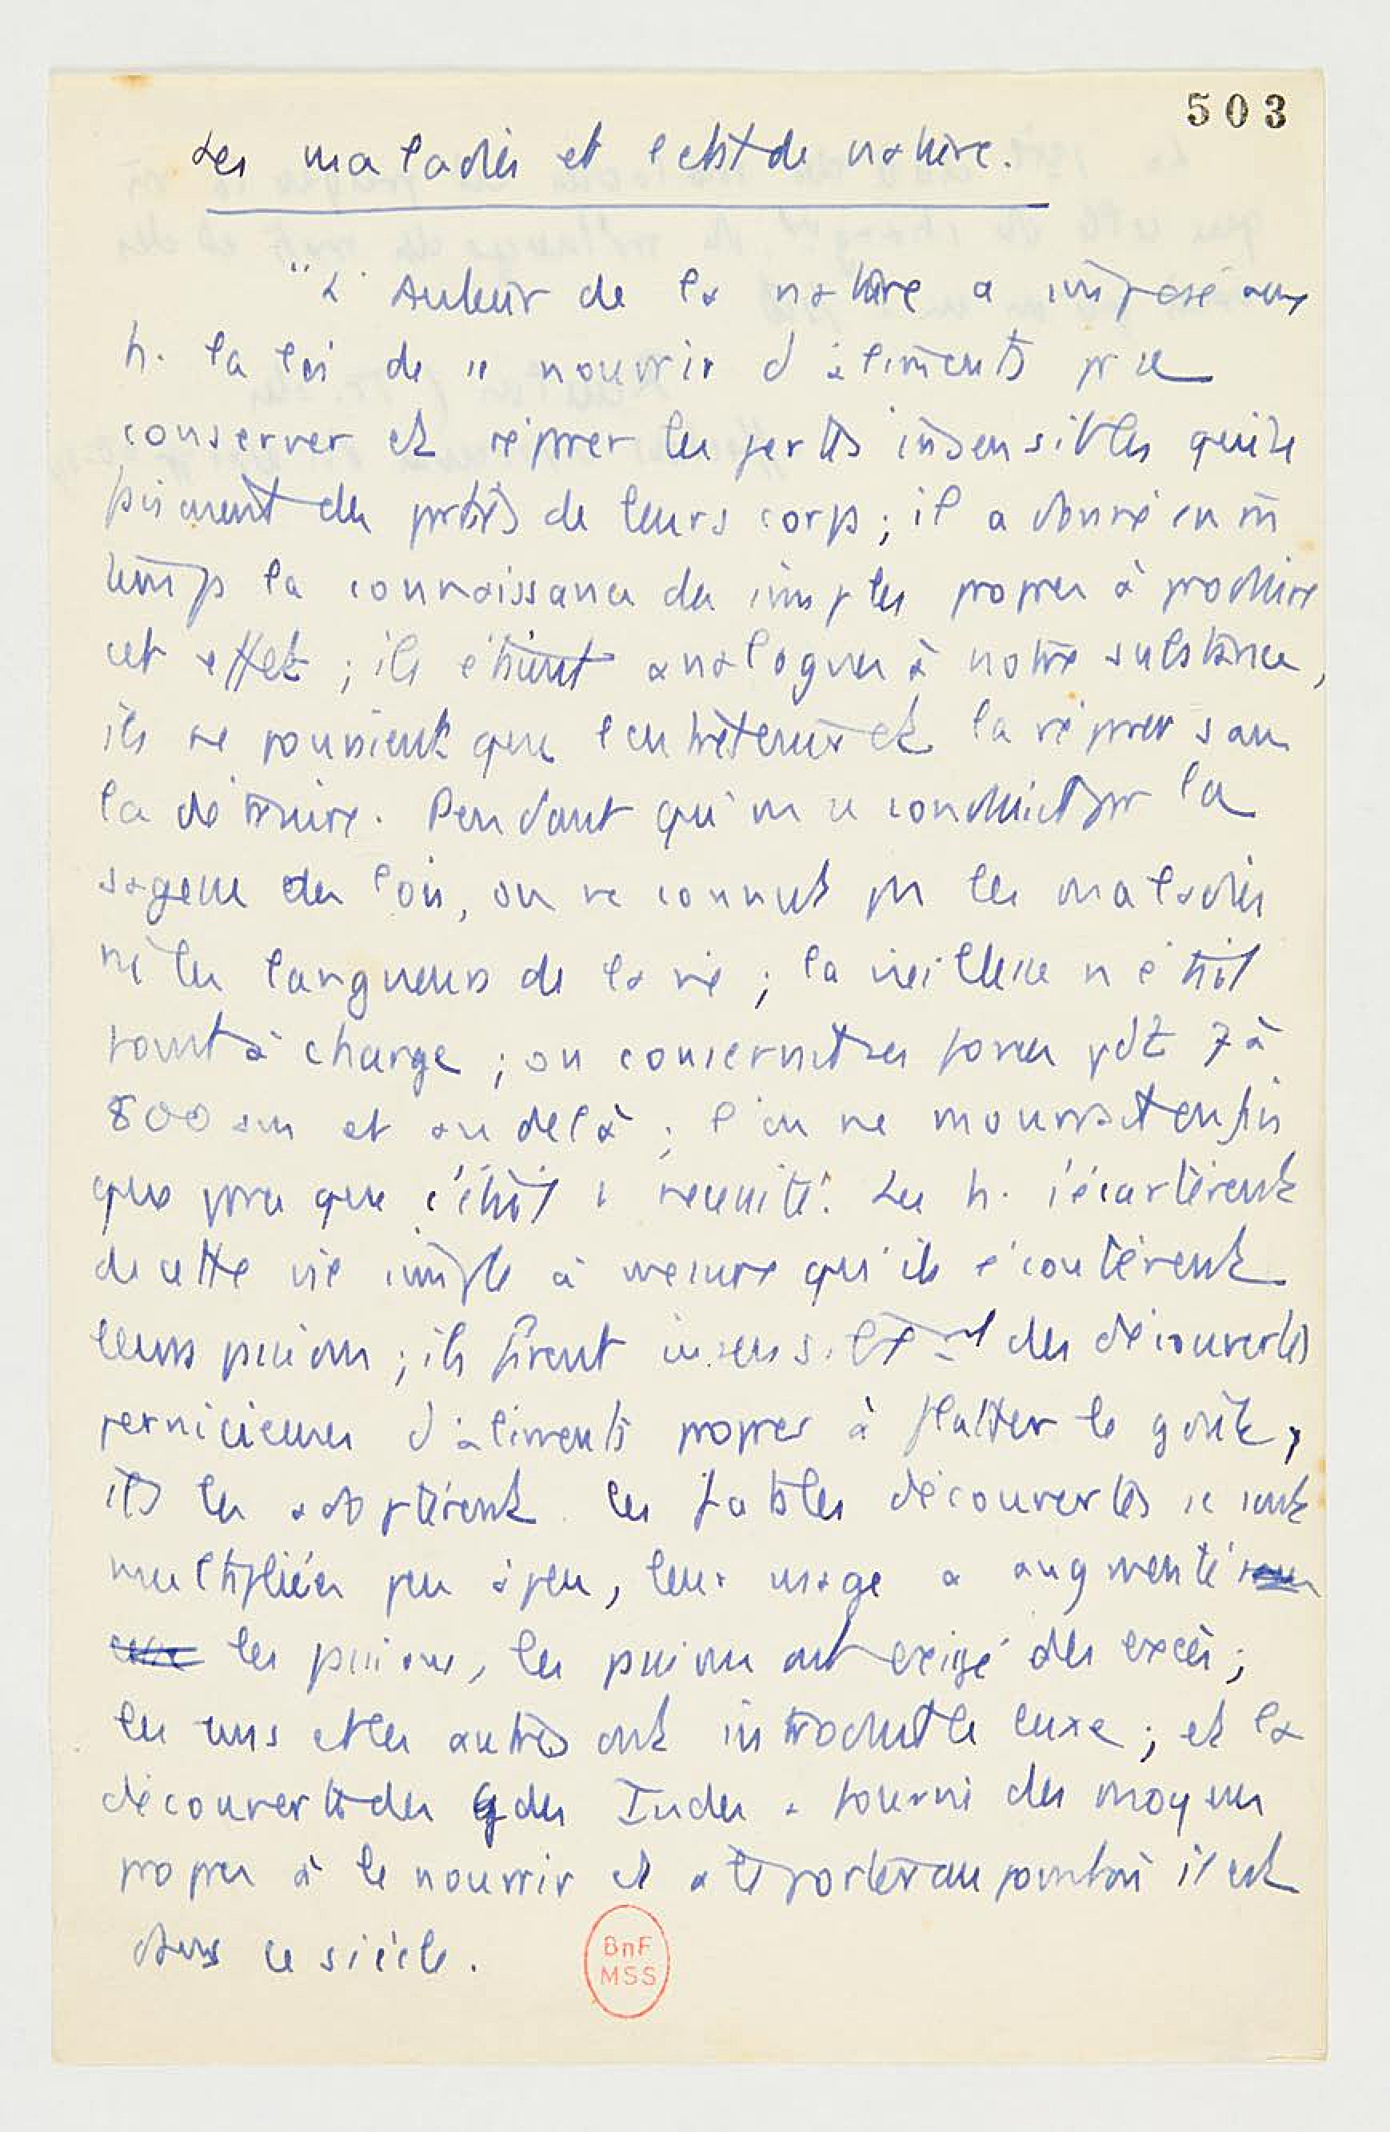 503
Les maladies et l'état de nature.
"L'Auteur de la nature a imposé aux
h. la loi de se nourrir d'aliments pr se
conserver et réparer les pertes insensibles qui se
faisaient des parties de leurs corps ; il a donné en m̄
temps la connaissance des simples propres à produire
cet effet ; ils étaient analogues à notre substance,
ils ne pouvaient que l'entretenir et la réparer sans
la détruire. Pendant qu'on se conduisit par la
sagesse des lois, on ne connut pas les maladies
ni les langueurs de la vie ; la vieillesse n'était
point à charge ; on conservait ses forces pdt 7 à
800 ans et au delà ; l'on ne mourrait enfin
que parce que c'était 1 nécessité. Les h. s'écartèrent
de cette vie simple à mesure qu'ils écoutèrent
leurs passions ; ils firent insensiblemt des découvertes
pernicieuses d'aliments propres à flatter le goût,
ils les adoptèrent. Ces fatales découvertes se sont
multipliées peu à peu, leur usage a augmenté
les passions, les passions ont exigé des excès ;
les uns et les autres ont introduit le luxe ; et la
découverte des gdes Indes a fourni des moyens
propres à le nourrir et à le porter au point où il est
dans ce siècle.
BnF
MSS